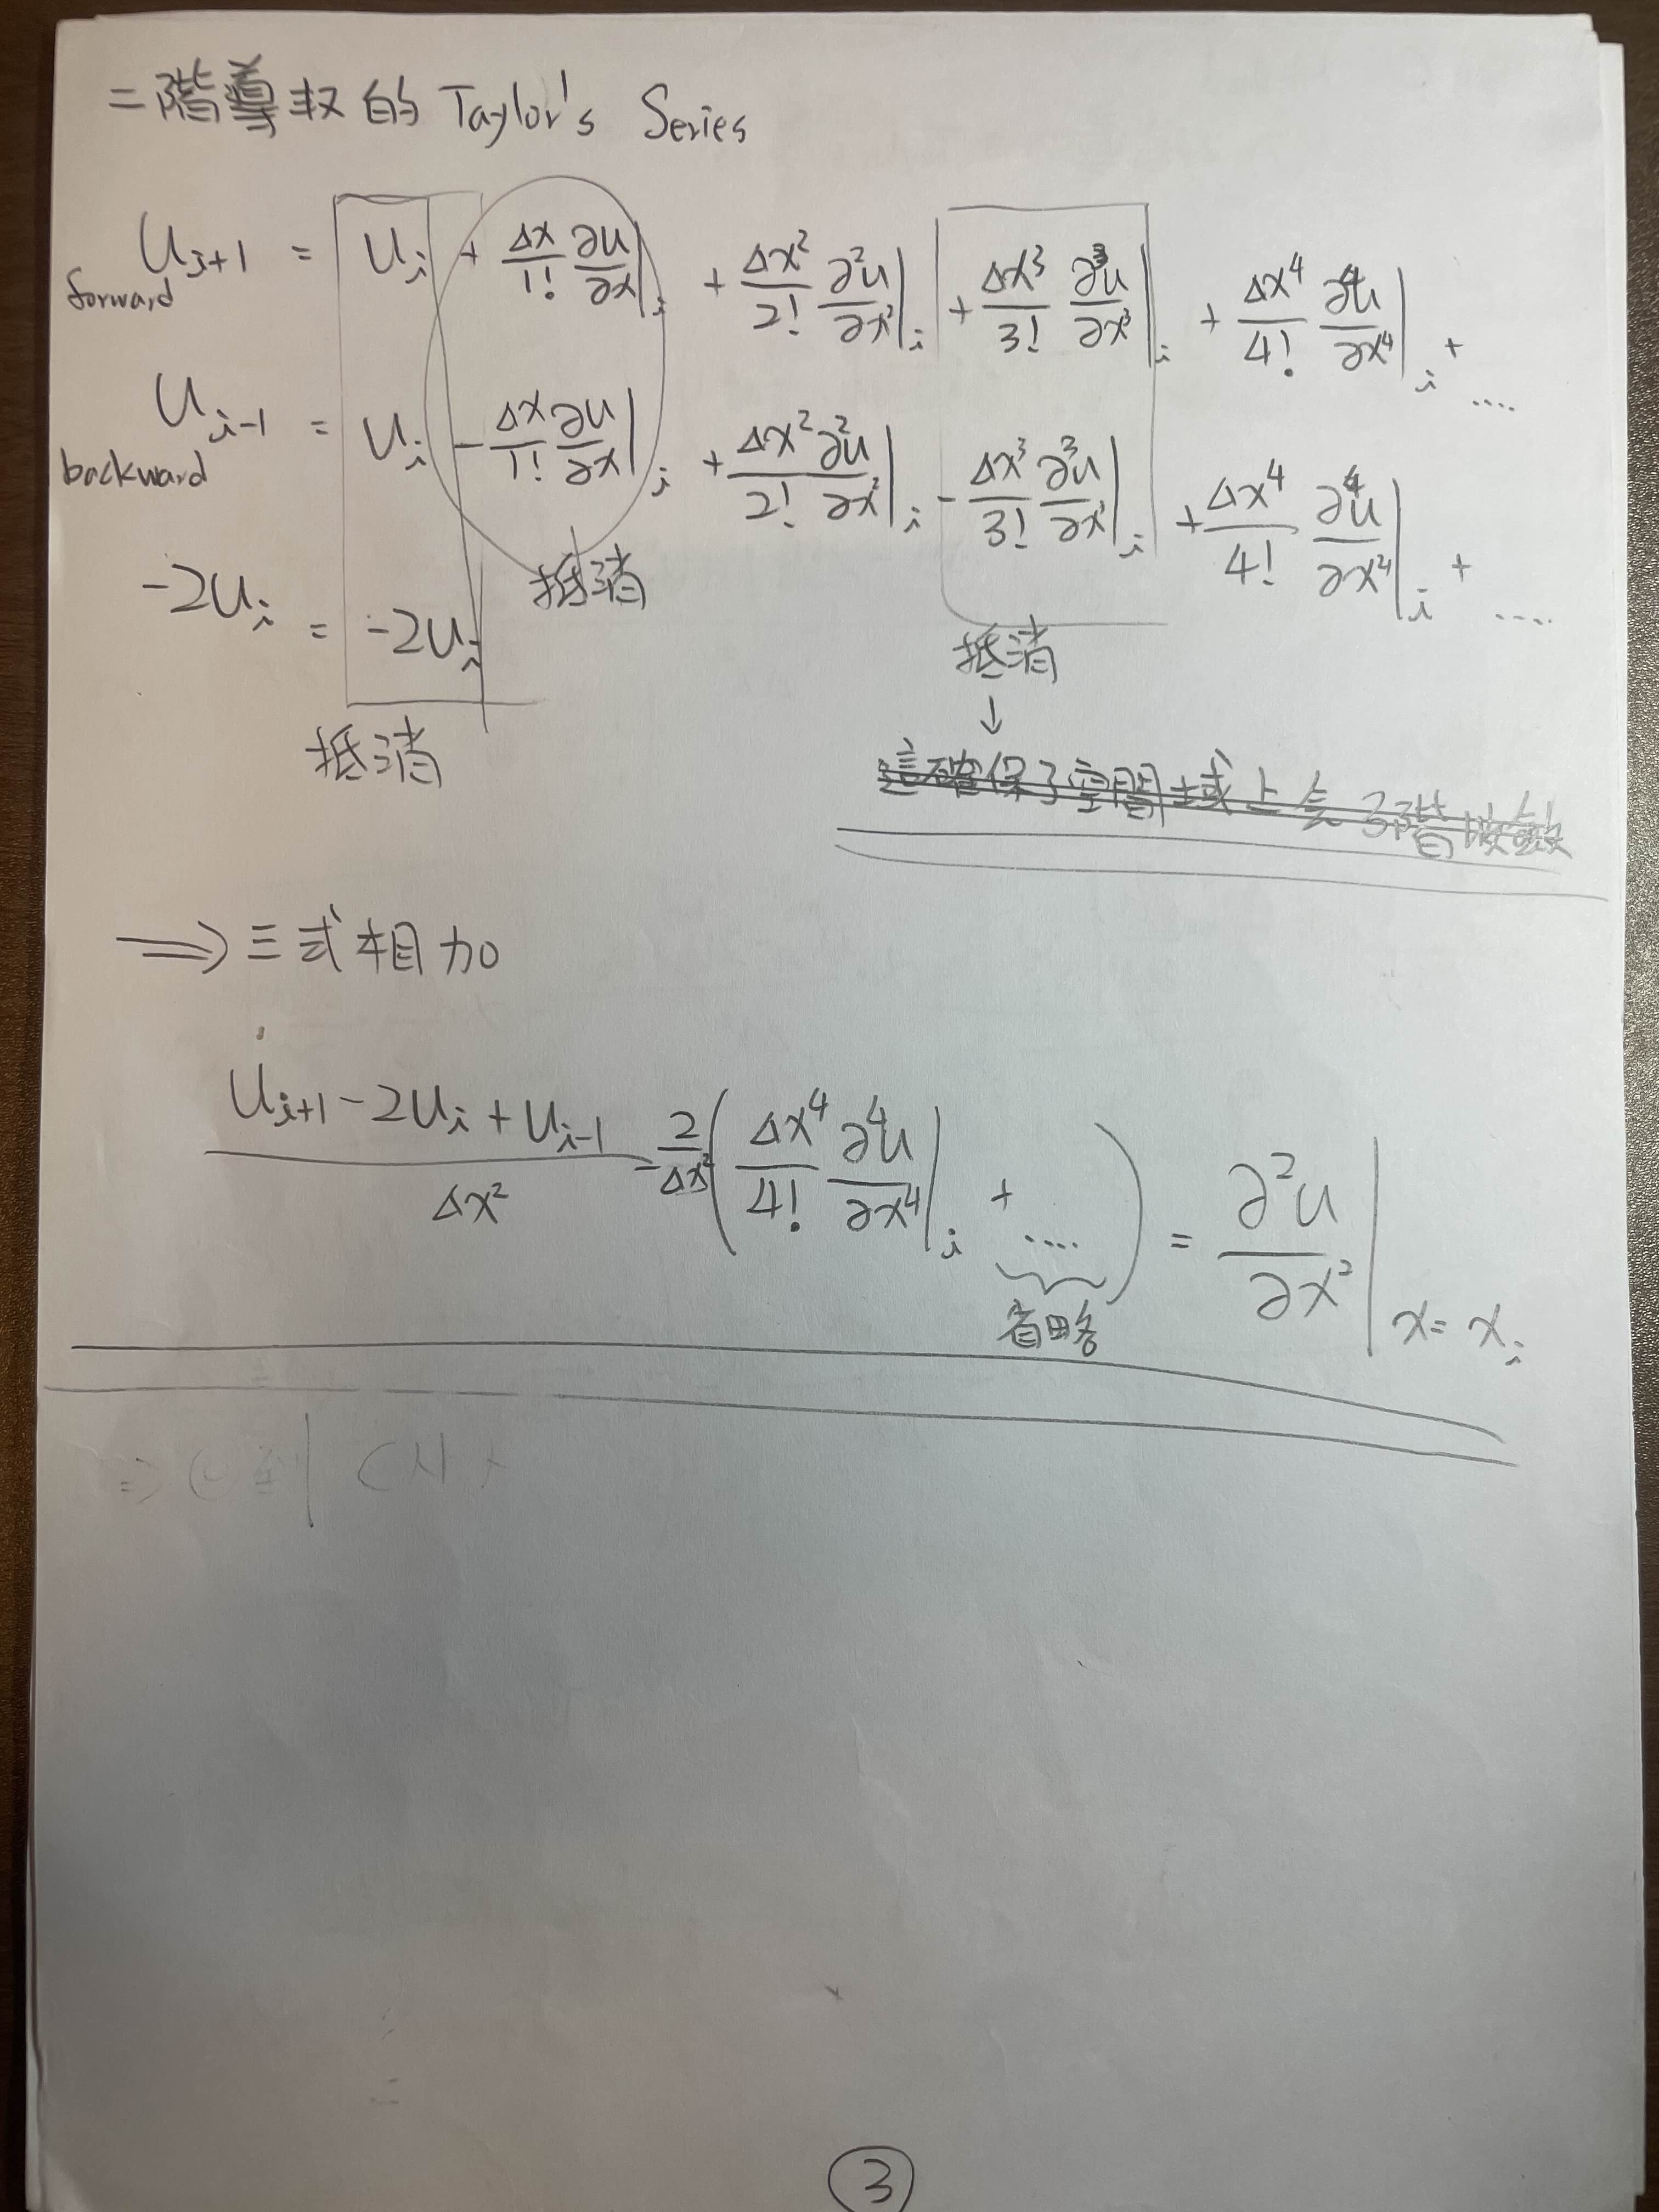 二階導权的 Taylor's Series
U_{i+1} = U_i + Δx/1! ∂u/∂x|_i + Δx²/2! ∂²u/∂x²|_i + Δx³/3! ∂³u/∂x³|_i + Δx⁴/4! ∂⁴u/∂x⁴|_i + ....
forward
U_{i-1} = U_i - Δx/1! ∂u/∂x|_i + Δx²/2! ∂²u/∂x²|_i - Δx³/3! ∂³u/∂x³|_i + Δx⁴/4! ∂⁴u/∂x⁴|_i + ....
backward
-2U_i = -2U_i
抵消
抵消
抵消
↓
這確保了空間域上
⟹ 三式相加
(U_{i+1} - 2U_i + U_{i-1})/Δx² - 2/Δx² (Δx⁴/4! ∂⁴u/∂x⁴|_i + ....) = ∂²u/∂x²|_{x=x_i}
省略
③